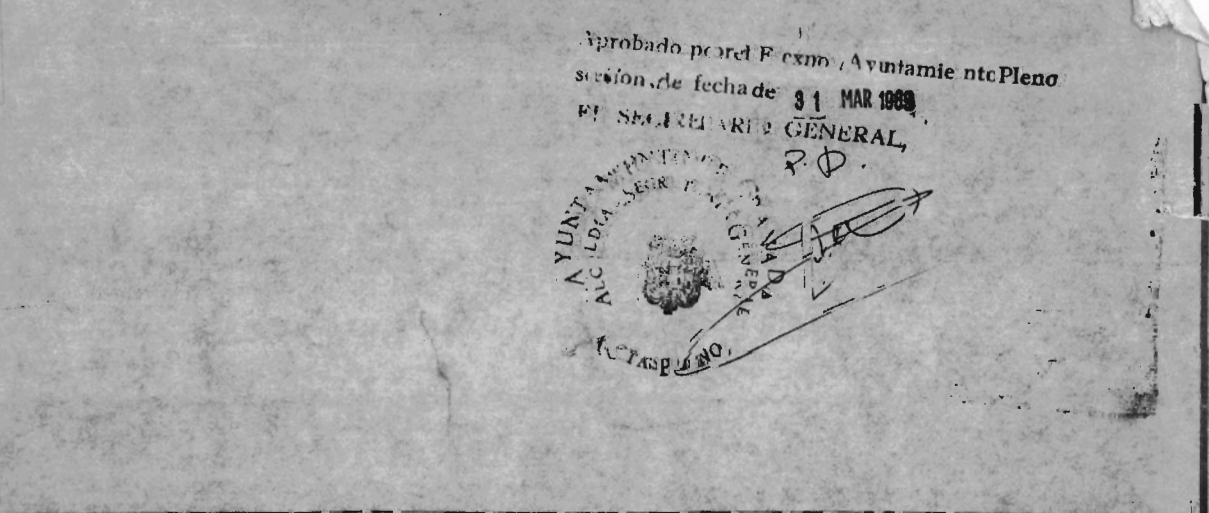 Aprobado por el Excmo. Ayuntamiento Pleno
sesión de fecha de 31 MAR 1989
EL SECRETARIO GENERAL,
P.D.
AYUNTAMIENTO DE GRANADA
ALCALDIA SECRETARIA GENERAL